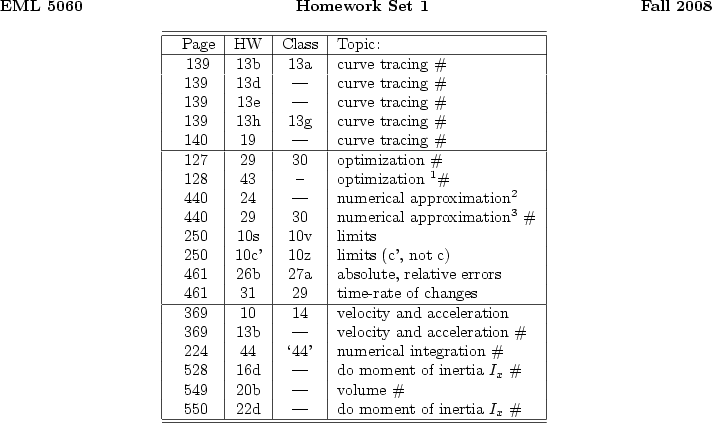 EML 5060 Homework Set 1 Fall 2008
Page HW Class Topic:
139 13b 13a curve tracing #
139 13d — curve tracing #
139 13e — curve tracing #
139 13h 13g curve tracing #
140 19 — curve tracing #
127 29 30 optimization #
128 43 – optimization ¹#
440 24 — numerical approximation²
440 29 30 numerical approximation³ #
250 10s 10v limits
250 10c' 10z limits (c', not c)
461 26b 27a absolute, relative errors
461 31 29 time-rate of changes
369 10 14 velocity and acceleration
369 13b — velocity and acceleration #
224 44 ‘44’ numerical integration #
528 16d — do moment of inertia Iₓ #
549 20b — volume #
550 22d — do moment of inertia Iₓ #